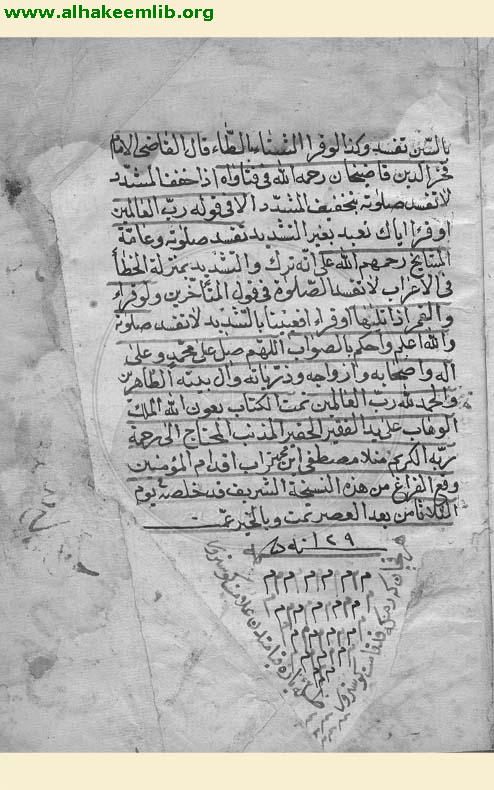 www.alhakeemlib.org
بالسّين تفسد وكذا لو قرأ الشيتاء بالطّاء قال القاضى الامام
فخر الدين قاضيخان رحمه الله فى فتاواه اذا خفف المشدّد
لا تفسد صلوته بتخفيف المشدّد الا فى قوله ربّ العالمين
او قرأ اياك نعبد بغير التشديد تفسد صلوته وعامّة
المشايخ رحمهم الله على انّه ترك والتشديد بمنزلة الخطأ
فى الاعراب لا تفسد الصّلوة فى قول المتأخّرين ولو قراء
والقمر اذا تليها او قراء افعيينا بالتشديد لا تفسد صلوته
والله اعلم واحكم بالصواب اللّهم صل على محمد وعلى
اله واصحابه وازواجه وذرّياته وال بيته الطاهرين
والحمد لله رب العالمين تمت الكتاب بعون الله الملك
الوهاب على يد الفقير الحقير المذنب المحتاج الى رحمة
ربّه الكريم منلا مصطفى ابن محراب اقدام المؤمنين
وقع الفراغ من هذه النسخة الشريف يوم
الثلاثا من بعد العصر تمت وبالخير عمت
١٢٩
م م م م م م
م م م م م م
م م م م م
م م م م
م م